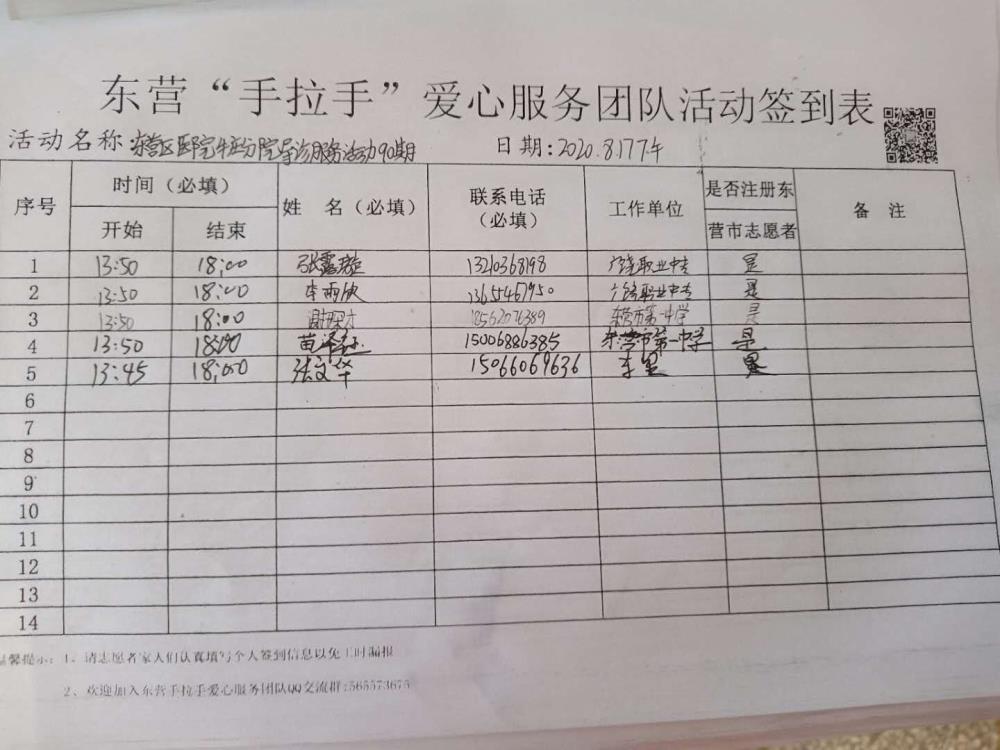 东营“手拉手”爱心服务团队活动签到表
活动名称:东营区医院牛庄分院导诊服务活动90期 日期:2020.8.17下午
序号 时间（必填） 姓 名（必填） 联系电话（必填） 工作单位 是否注册东营市志愿者 备 注
开始 结束
1 13:50 18:00 张露璇 13210368198 广饶职业中专 是
2 13:50 18:00 李雨欣 13655467950 广饶职业中专 是
3 13:50 18:00 18562076389 东营市第一中学 是
4 13:50 18:00 苗泽 15006886385 东营市第一中学 是
5 13:45 18:00 张文华 15066069636 是
6
7
8
9
10
11
12
13
14
温馨提示: 1、请志愿者家人们认真填写个人签到信息以免工时漏报
2、欢迎加入东营手拉手爱心服务团队QQ交流群:565573675